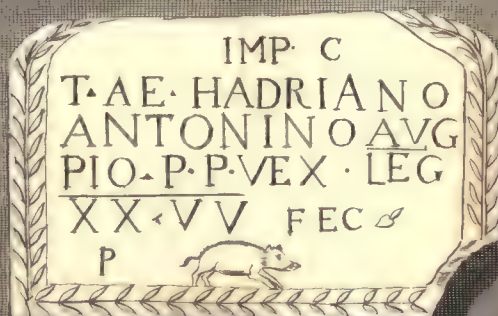 IMP· C
T· AE· HADRIANO
ANTONINO AVG
PIO· P· P· VEX · LEG
XX · VV FEC
P